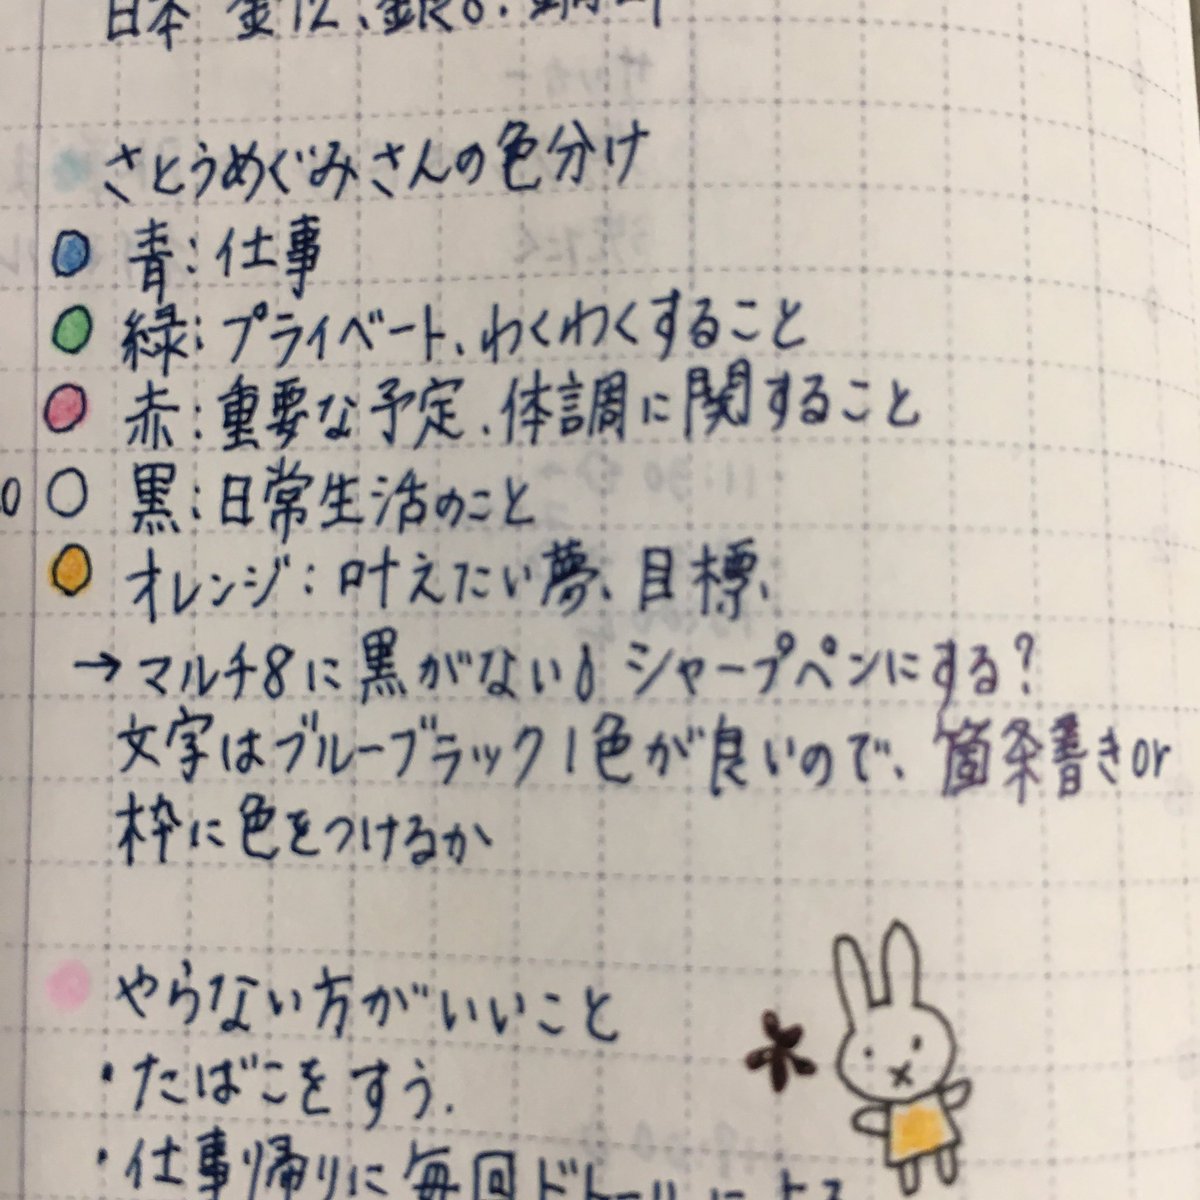 日本 金12、銀8、銅21
さとうめぐみさんの色分け
青:仕事
緑:プライベート、わくわくすること
赤:重要な予定、体調に関すること
黒:日常生活のこと
オレンジ:叶えたい夢、目標、
→マルチ8に黒がない シャープペンにする?
文字はブルーブラック1色が良いので、箇条書きor
枠に色をつけるか
やらない方がいいこと
・たばこをすう.
・仕事帰りに毎回ドトールによる